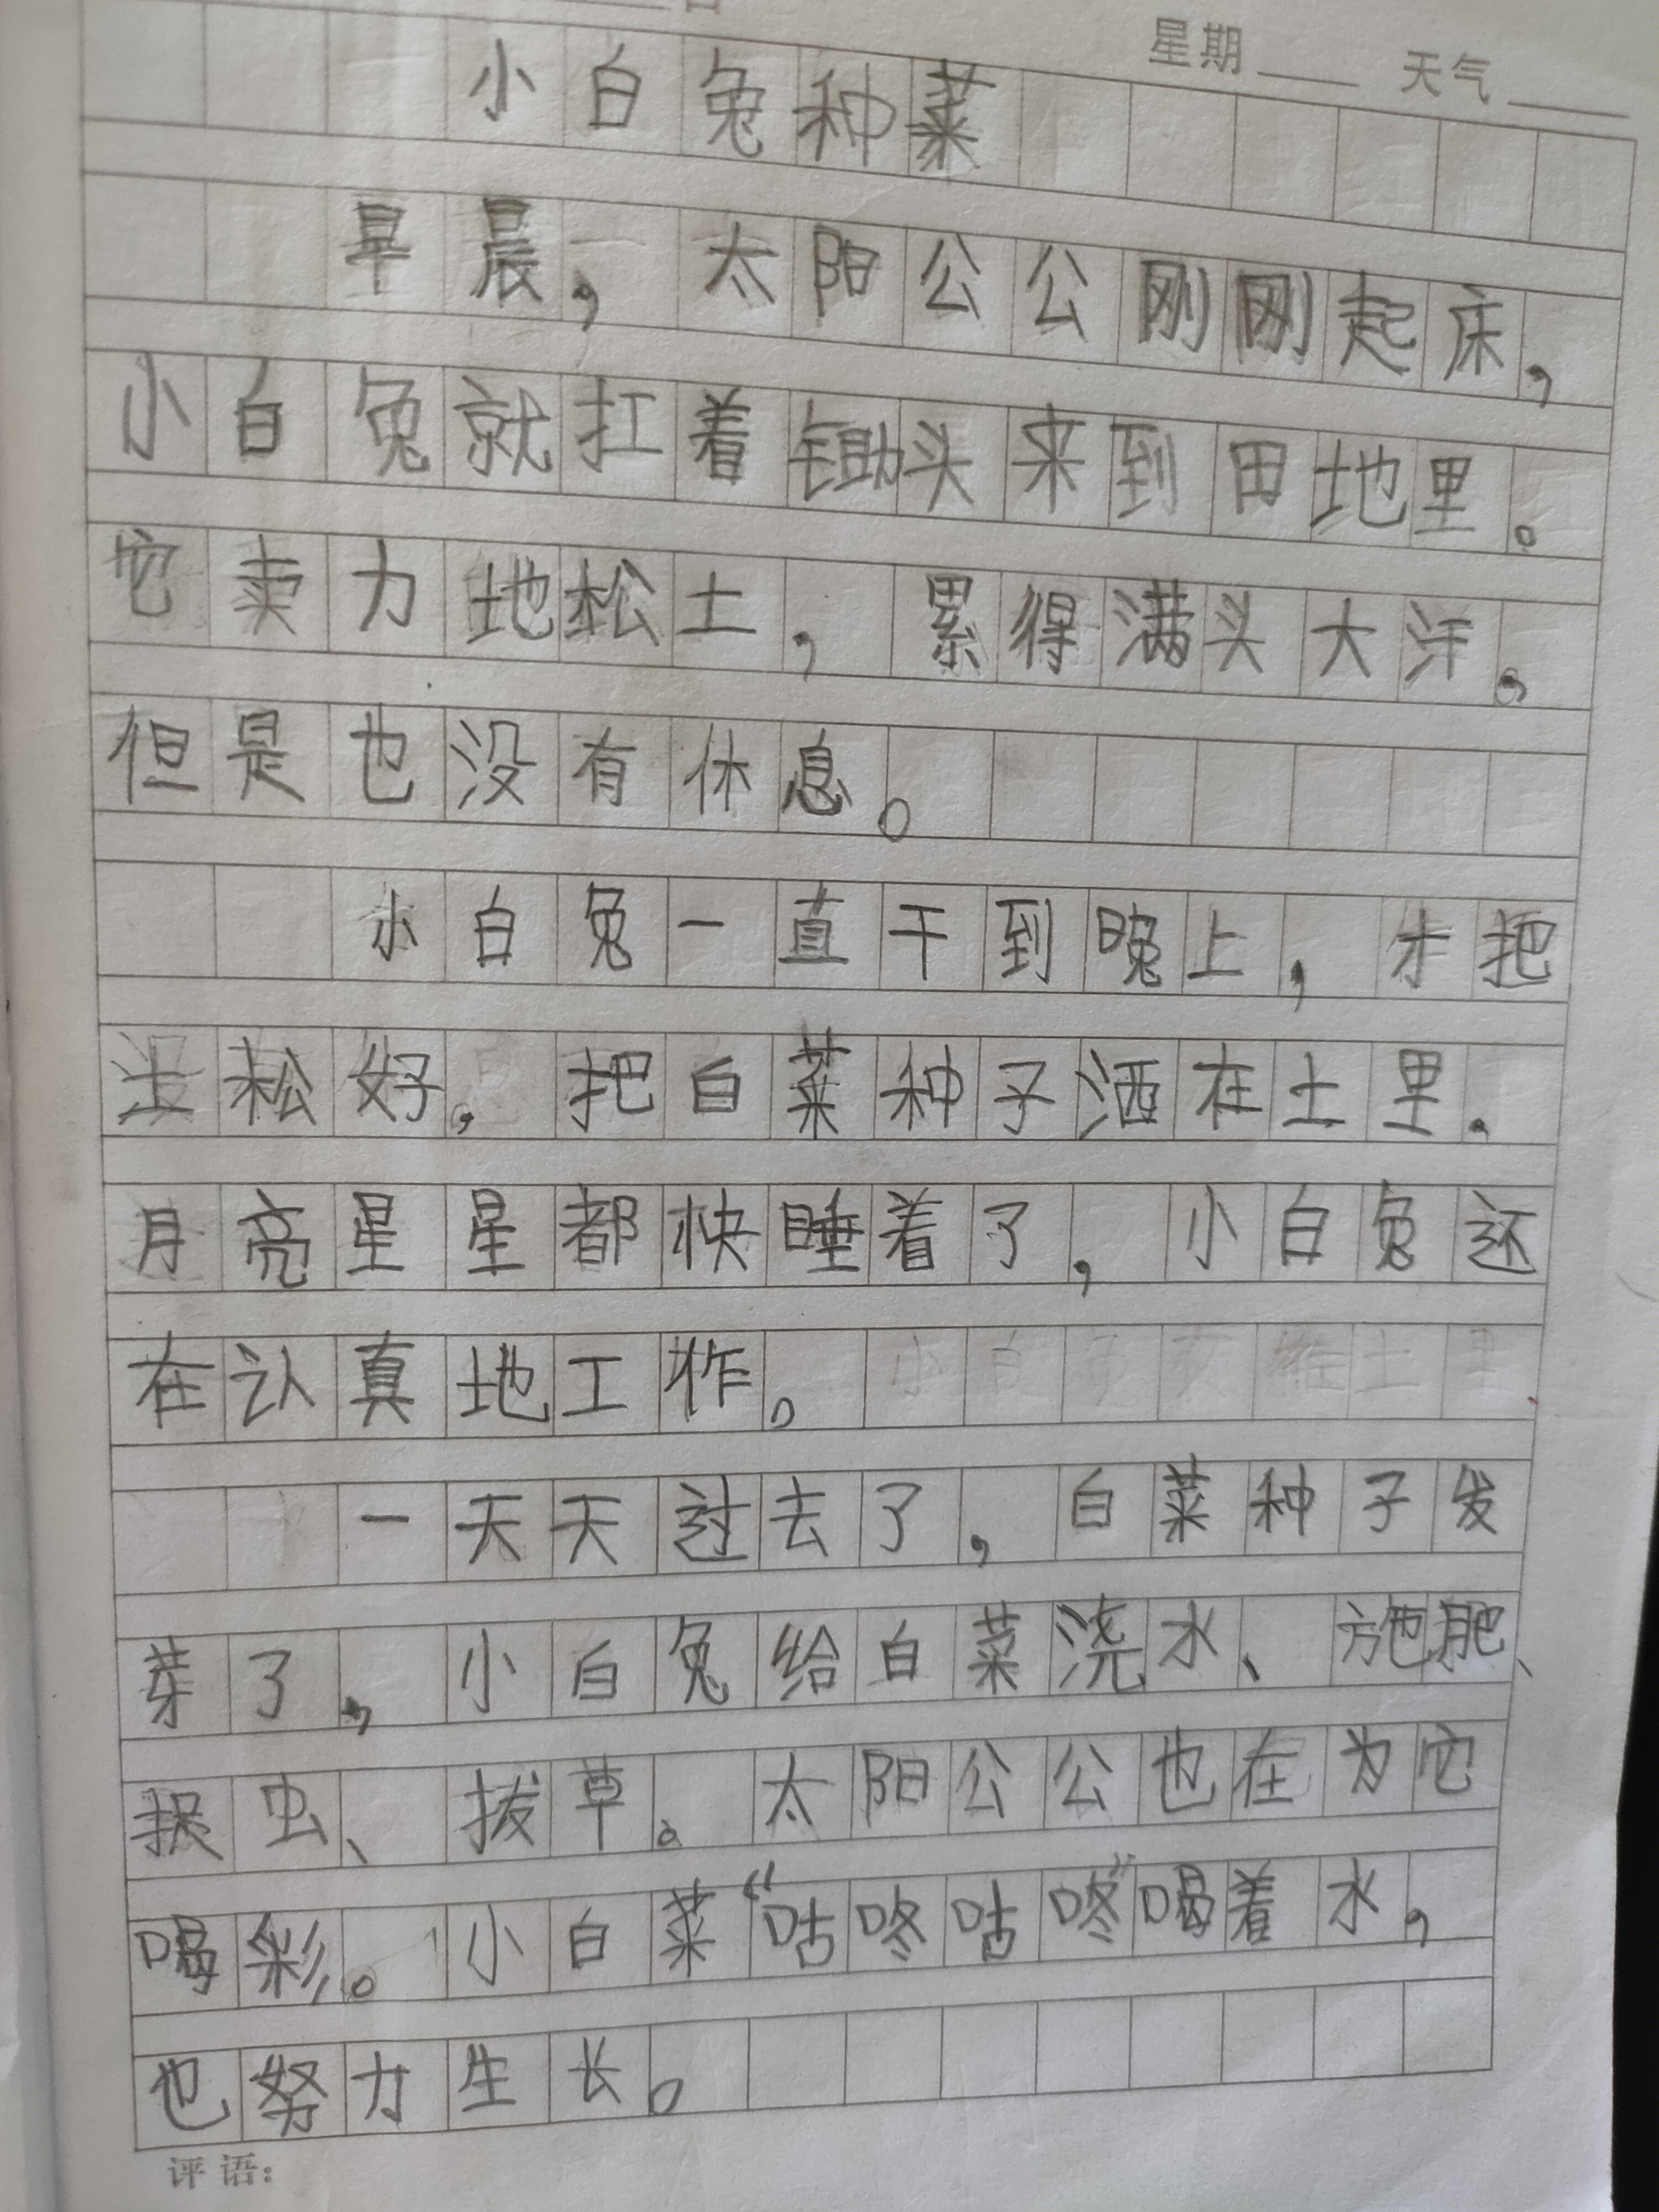 星期 天气
小白兔种菜
早晨，太阳公公刚刚起床，
小白兔就扛着锄头来到田地里。
它卖力地松土，累得满头大汗，
但是也没有休息。
小白兔一直干到晚上，才把
土松好，把白菜种子洒在土里.
月亮星星都快睡着了，小白兔还
在认真地工作。
一天天过去了，白菜种子发
芽了，小白兔给白菜浇水、施肥、
捉虫、拔草。太阳公公也在为它
喝彩。小白菜“咕咚咕咚”喝着水，
也努力生长。
评语：